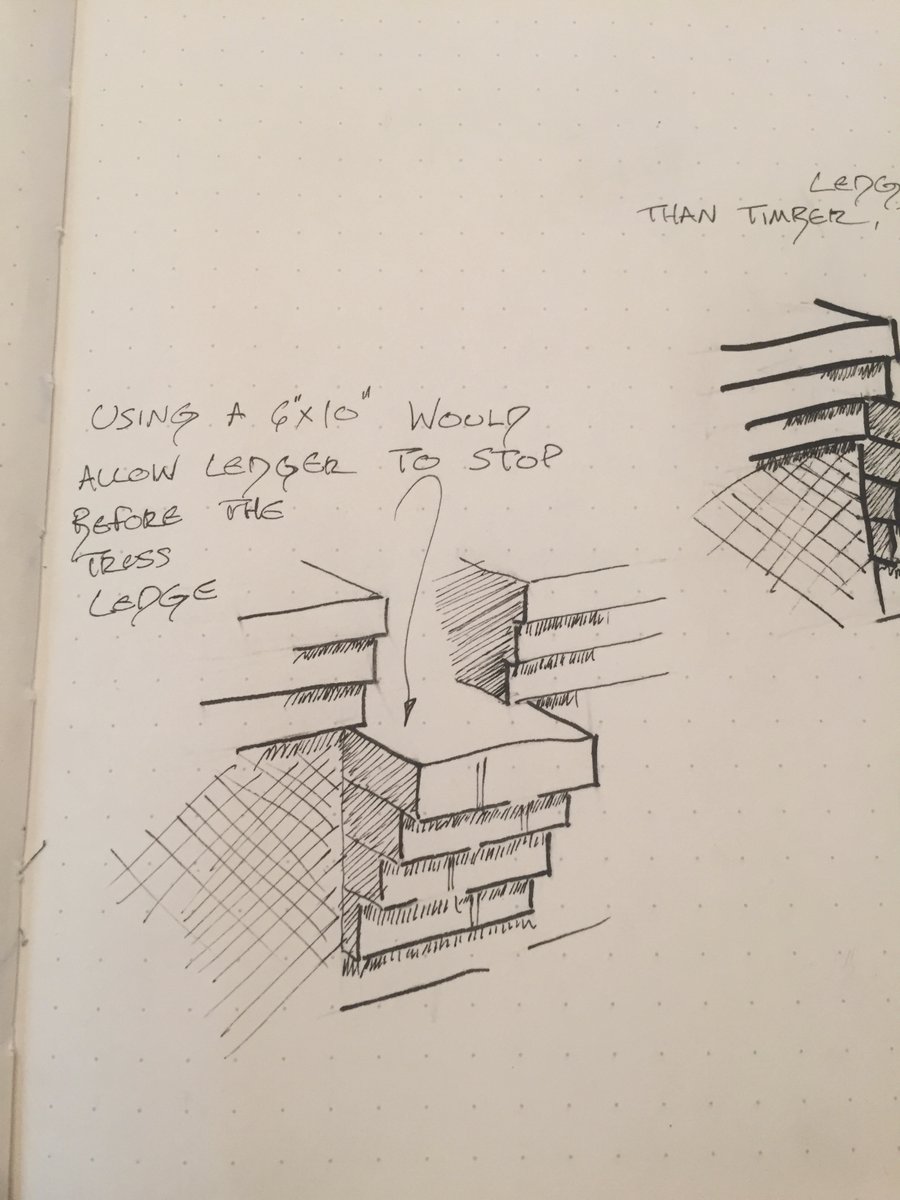 LEDG
THAN TIMBER,
USING A 6"X10" WOULD
ALLOW LEDGER TO STOP
BEFORE THE
TRUSS
LEDGE